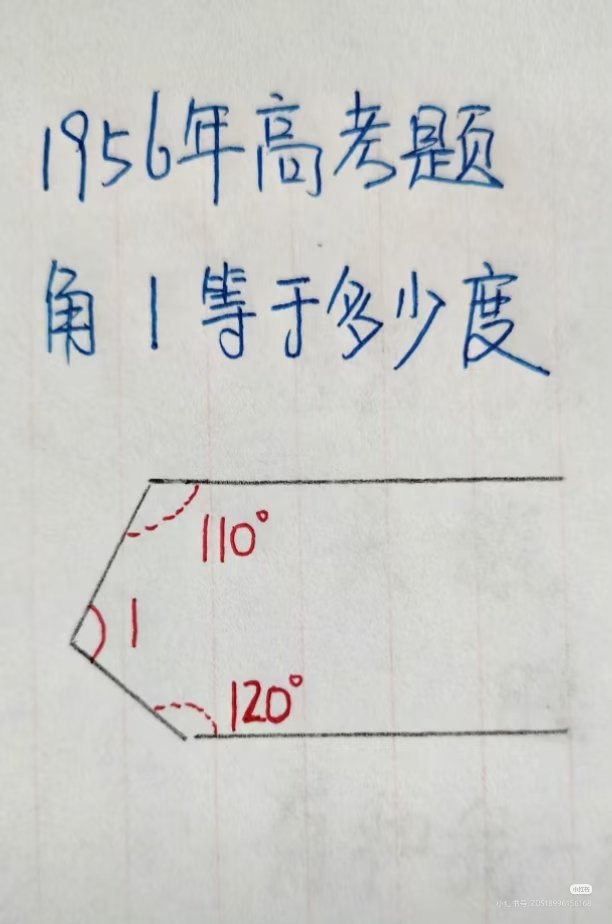 1956年高考题
角1等于多少度
110°
1
120°
小红书